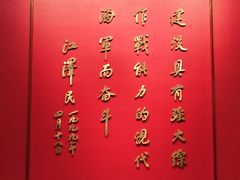 建设具有强大综合
作战能力的现代
海军而奋斗
江泽民
一九九九年
四月十八日